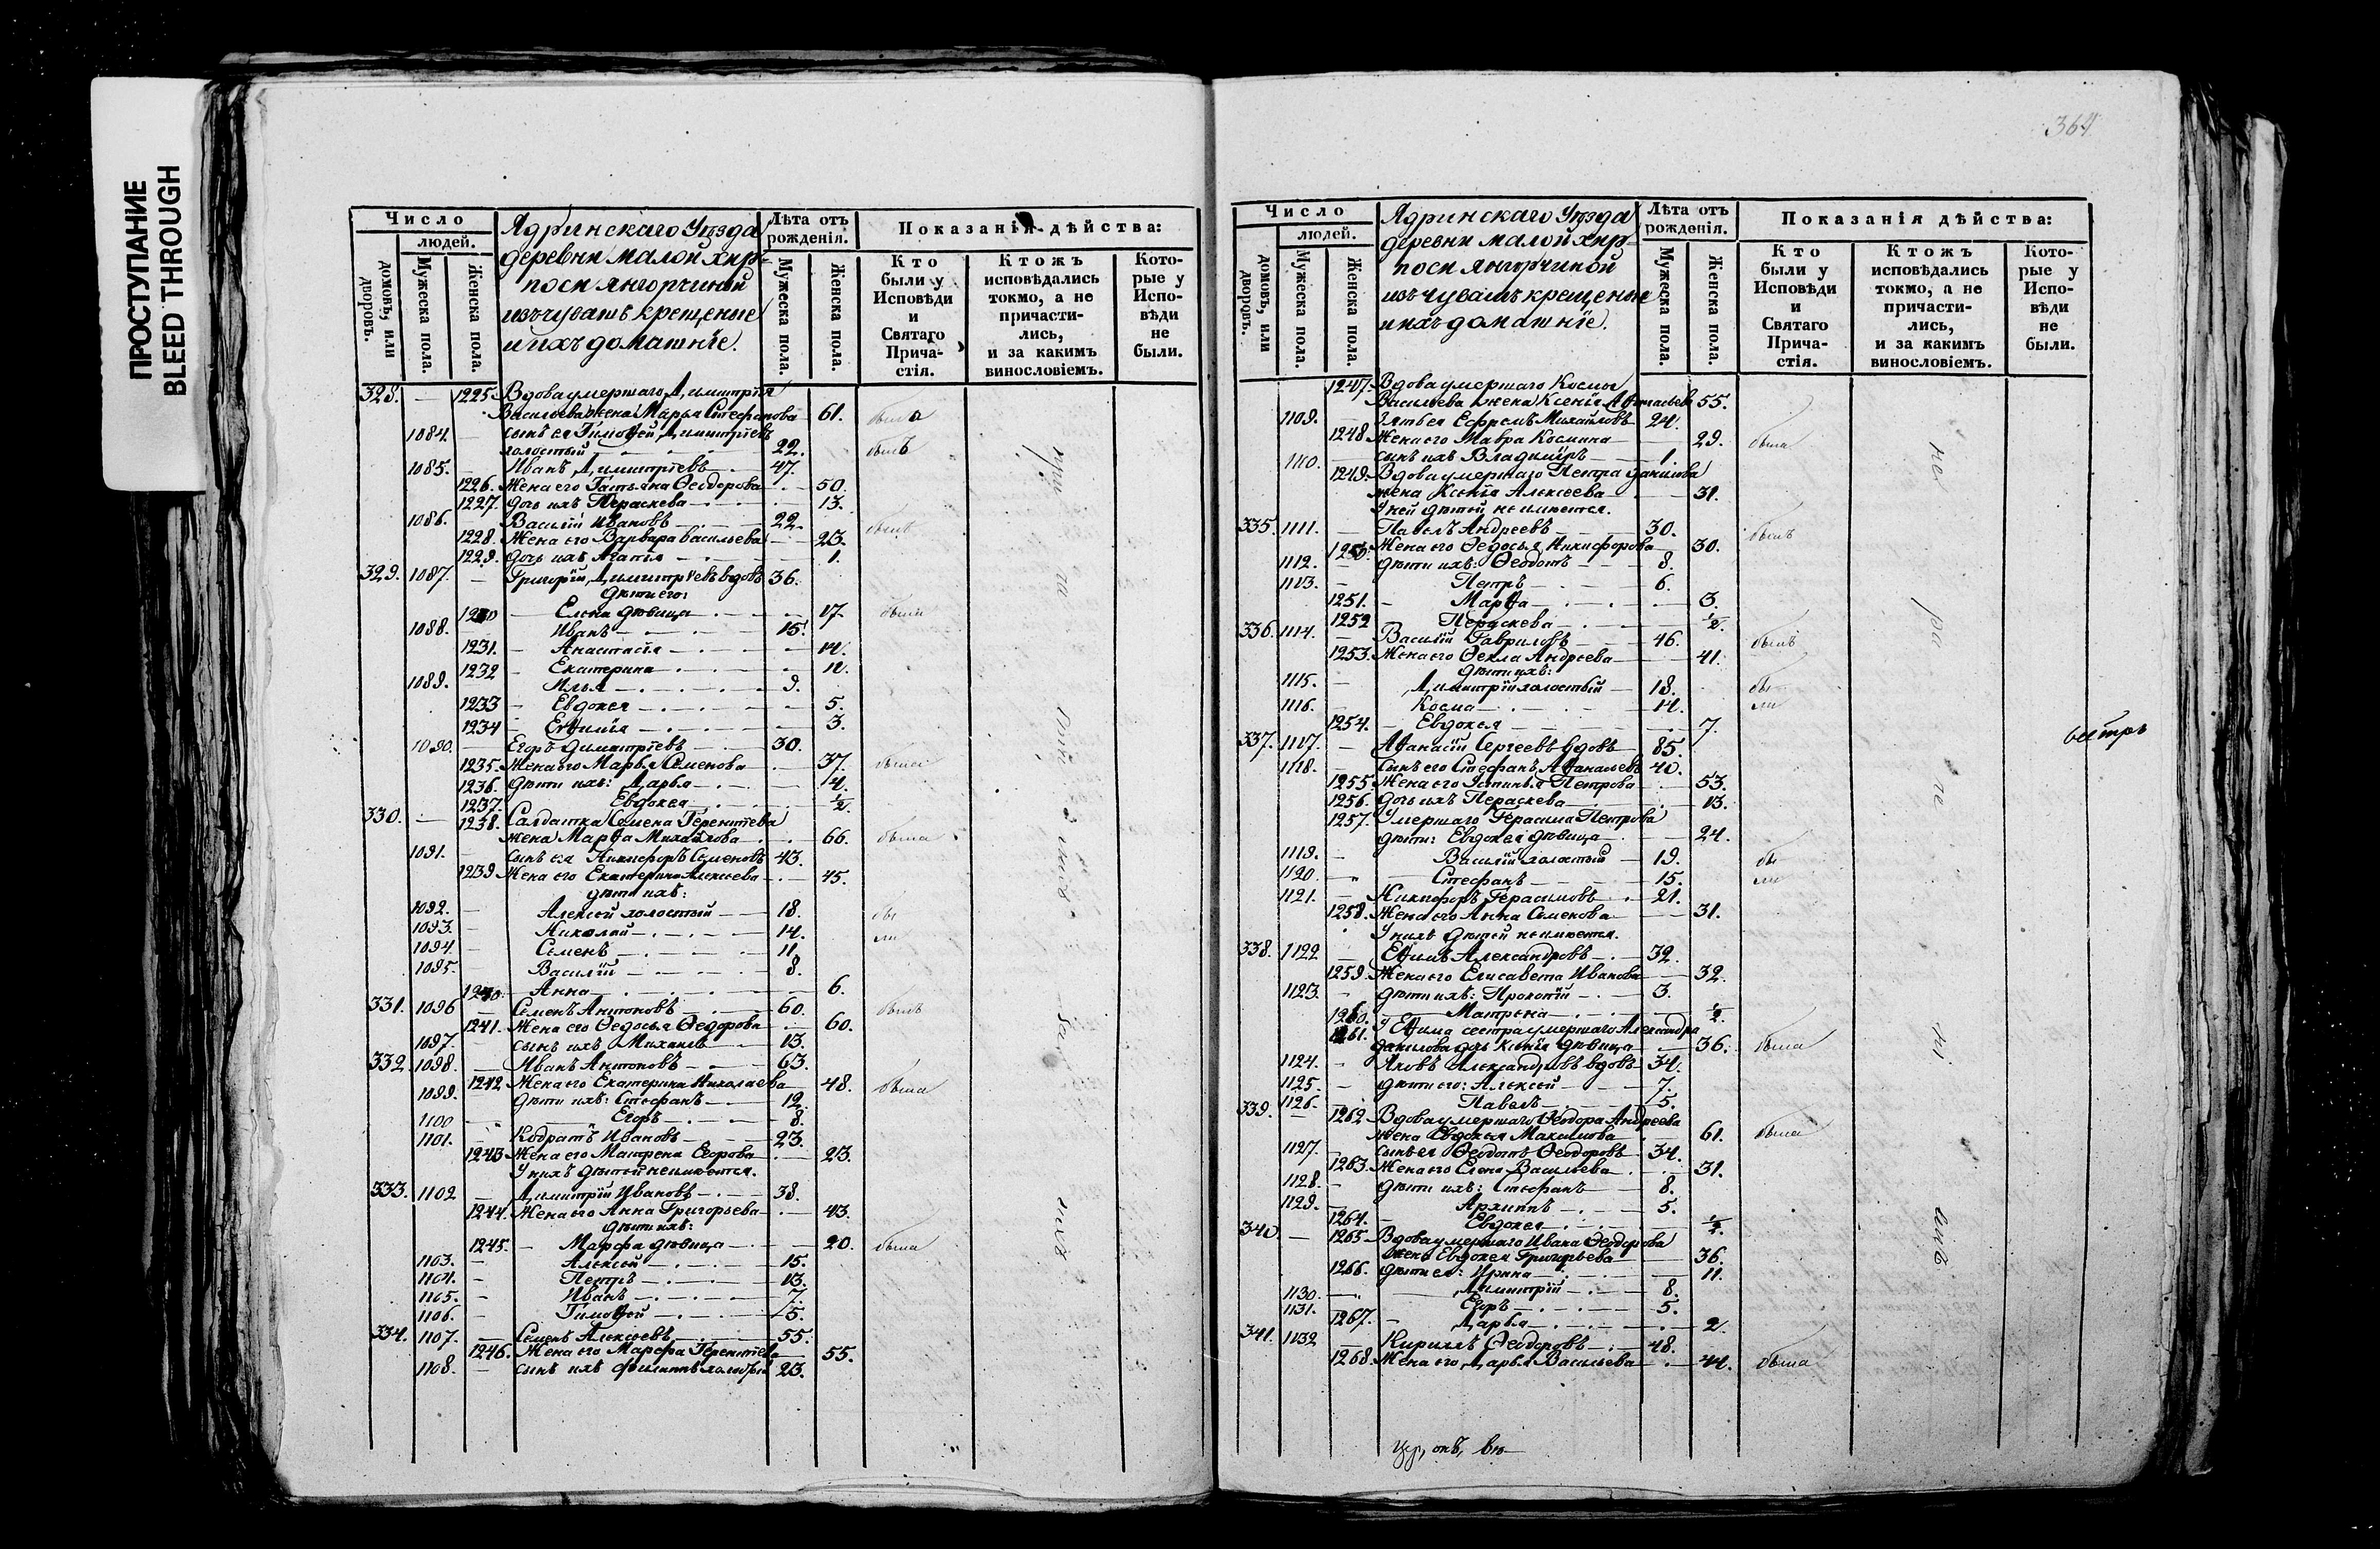 ПРОСТУПАНИЕ
BLEED THROUGH
364
Число
людей.
домовъ, или дворовъ.
Мужеска пола.
Женска пола.
Ядринскаго Уѣзда
деревни Малой Хир-
поси Янгорчиной
изъ чувашъ крещеные
и ихъ домашніе.
Лѣта отъ рожденія.
Мужеска пола.
Женска пола.
Показанія дѣйства:
Кто были у Исповѣди и Святаго Прича-стія.
Ктожъ исповѣдались токмо, а не причасти-лись, и за какимъ винословіемъ.
Кото-рые у Испо-вѣди не были.
328. — 1225. Вдова умершаго Димитрія
Васильева жена Марья Стефанова 61. была
1084. — сынъ ея Тимоѳей Димитріевъ
холостый 22. былъ
1085. — Иванъ Димитріевъ 47.
1226. Жена его Татьяна Ѳеодорова 50.
1227. дочь ихъ Параскева 13.
1086. — Василій Ивановъ 22. былъ
1228. Жена его Варвара Васильева 23.
1229. дочь ихъ Агапія 1.
329. 1087. — Григорій Димитріевъ вдовъ 36.
дѣти его:
1230 Елена дѣвица 17. были
1088. — Иванъ 15.
1231. Анастасія 14.
1232 Екатерина 12.
1089. Илья 9.
1233 Евдокея 5.
1234 Евѳимія 3.
1090. — Егоръ Димитріевъ 30.
1235. Жена его Марья Семенова 37. была
1236. дѣти ихъ: Дарья 4.
1237. Евдокея ½
330. — 1238. Салдатка Семена Терентьева
жена Марѳа Михайлова 66. была
1091. — сынъ ея Никифоръ Семеновъ 43.
1239 Жена его Екатерина Алексеева 45.
дѣти ихъ:
1092. — Алексей холостый 18. бы
1093. — Николай 14. ли
1094. — Семенъ 11.
1095. — Василій 8.
1240 Анна 6.
331. 1096 — Семенъ Антоновъ 60. былъ
1241. Жена его Ѳедосья Ѳедорова 60.
1097. сынъ ихъ Михаилъ 13.
332. 1098. — Иванъ Антоновъ 63.
1242 Жена его Екатерина Николаева 48. была
1099. дѣти ихъ: Стефанъ 12.
1100 — Егоръ 8.
1101. — Кодратъ Ивановъ 23.
1243 Жена его Матрена Егорова 23.
У нихъ дѣтей неимеется.
333. 1102 — Димитрій Ивановъ 38.
1244. Жена его Анна Григорьева 43.
дѣти ихъ:
1245. Марфа дѣвица 20. была
1103. — Алексей 15.
1104. — Петръ 13.
1105. — Иванъ 7.
1106. — Тимоѳей 5.
334. 1107. — Семенъ Алексеевъ 55.
1246. Жена его Марфа Терентьева 55.
1108. — сынъ ихъ Филиппъ холостый 23.
Число
людей.
домовъ, или дворовъ.
Мужеска пола.
Женска пола.
Ядринскаго Уѣзда
деревни Малой Хир-
поси Янгорчиной
изъ чувашъ крещеные
и ихъ домашніе.
Лѣта отъ рожденія.
Мужеска пола.
Женска пола.
Показанія дѣйства:
Кто были у Исповѣди и Святаго Прича-стія.
Ктожъ исповѣдались токмо, а не причасти-лись, и за какимъ винословіемъ.
Кото-рые у Испо-вѣди не были.
1247. Вдова умершаго Космы
Васильева жена Ксенія 55.
1109. Зять ея Ефремъ Михайловъ 24.
1248 Жена его Мавра Космина 29. была
1110. — сынъ ихъ Владиміръ 1.
1249. Вдова умершаго Петра Данилова
жена Ксенія Алексеева 31.
У ней дѣтей не имеется.
335. 1111. — Павелъ Андреевъ 30. былъ
1250. Жена его Ѳедосья Никифорова 30.
1112. дѣти ихъ: Ѳеодотъ 8.
1113. — Петръ 6.
1251. Марѳа 3.
1252 Пераскева ½.
336. 1114. — Василій Гавриловъ 46. былъ
1253. Жена его Ѳекла Андреева 41.
дѣти ихъ:
1115. — Димитрій холостый 18. бы
1116. — Косма 14. ли
1254. Евдокея 7.
337. 1117. — Аѳанасій Сергеевъ вдовъ 85.
1118. — Сынъ его Стефанъ Аѳанасьевъ 40.
1255 Жена его Устинья Петрова 53.
1256. дочь ихъ Пераскева 13.
1257. Умершаго Герасима Петрова
дѣти: Евдокея дѣвица 24.
1119. — Василій холостый 19. бы
1120. Стефанъ 15. ли
1121. — Никифоръ Герасимовъ 21.
1258. Жена его Анна Семенова 31.
У нихъ дѣтей неимеется.
338. 1122 — Евѳимъ Александровъ 32.
1259. Жена его Елисавета Иванова 32.
1123. дѣти ихъ: Прокопій 3.
1260. Матрена ½
1261. У Евѳима сестра умершаго Александра
Данилова дочь Ксенія дѣвица 36. была
1124. — Яковъ Александровъ вдовъ 34.
1125. — дѣти его: Алексей 7.
1126. — Павелъ 5.
339. — 1262 Вдова умершаго Ѳеодора Андреева
жена Евдокея Максимова 61. была
1127. сынъ ея Ѳеодотъ Ѳеодоровъ 34.
1263. Жена его Елена Васильева 31.
1128. — дѣти ихъ: Стефанъ 8.
1129. — Архиппъ 5.
1264. Евдокея ½.
340. — 1265 Вдова умершаго Ивана Ѳеодорова
жена Евдокея Григорьева 36.
1266. дѣти ея: Ирина 11.
1130. Димитрій 8.
1131. — Егоръ 5.
1267. Дарья 2.
341. 1132 — Кирилъ Ѳеодоровъ 48.
1268. Жена его Дарья Васильева 44. была